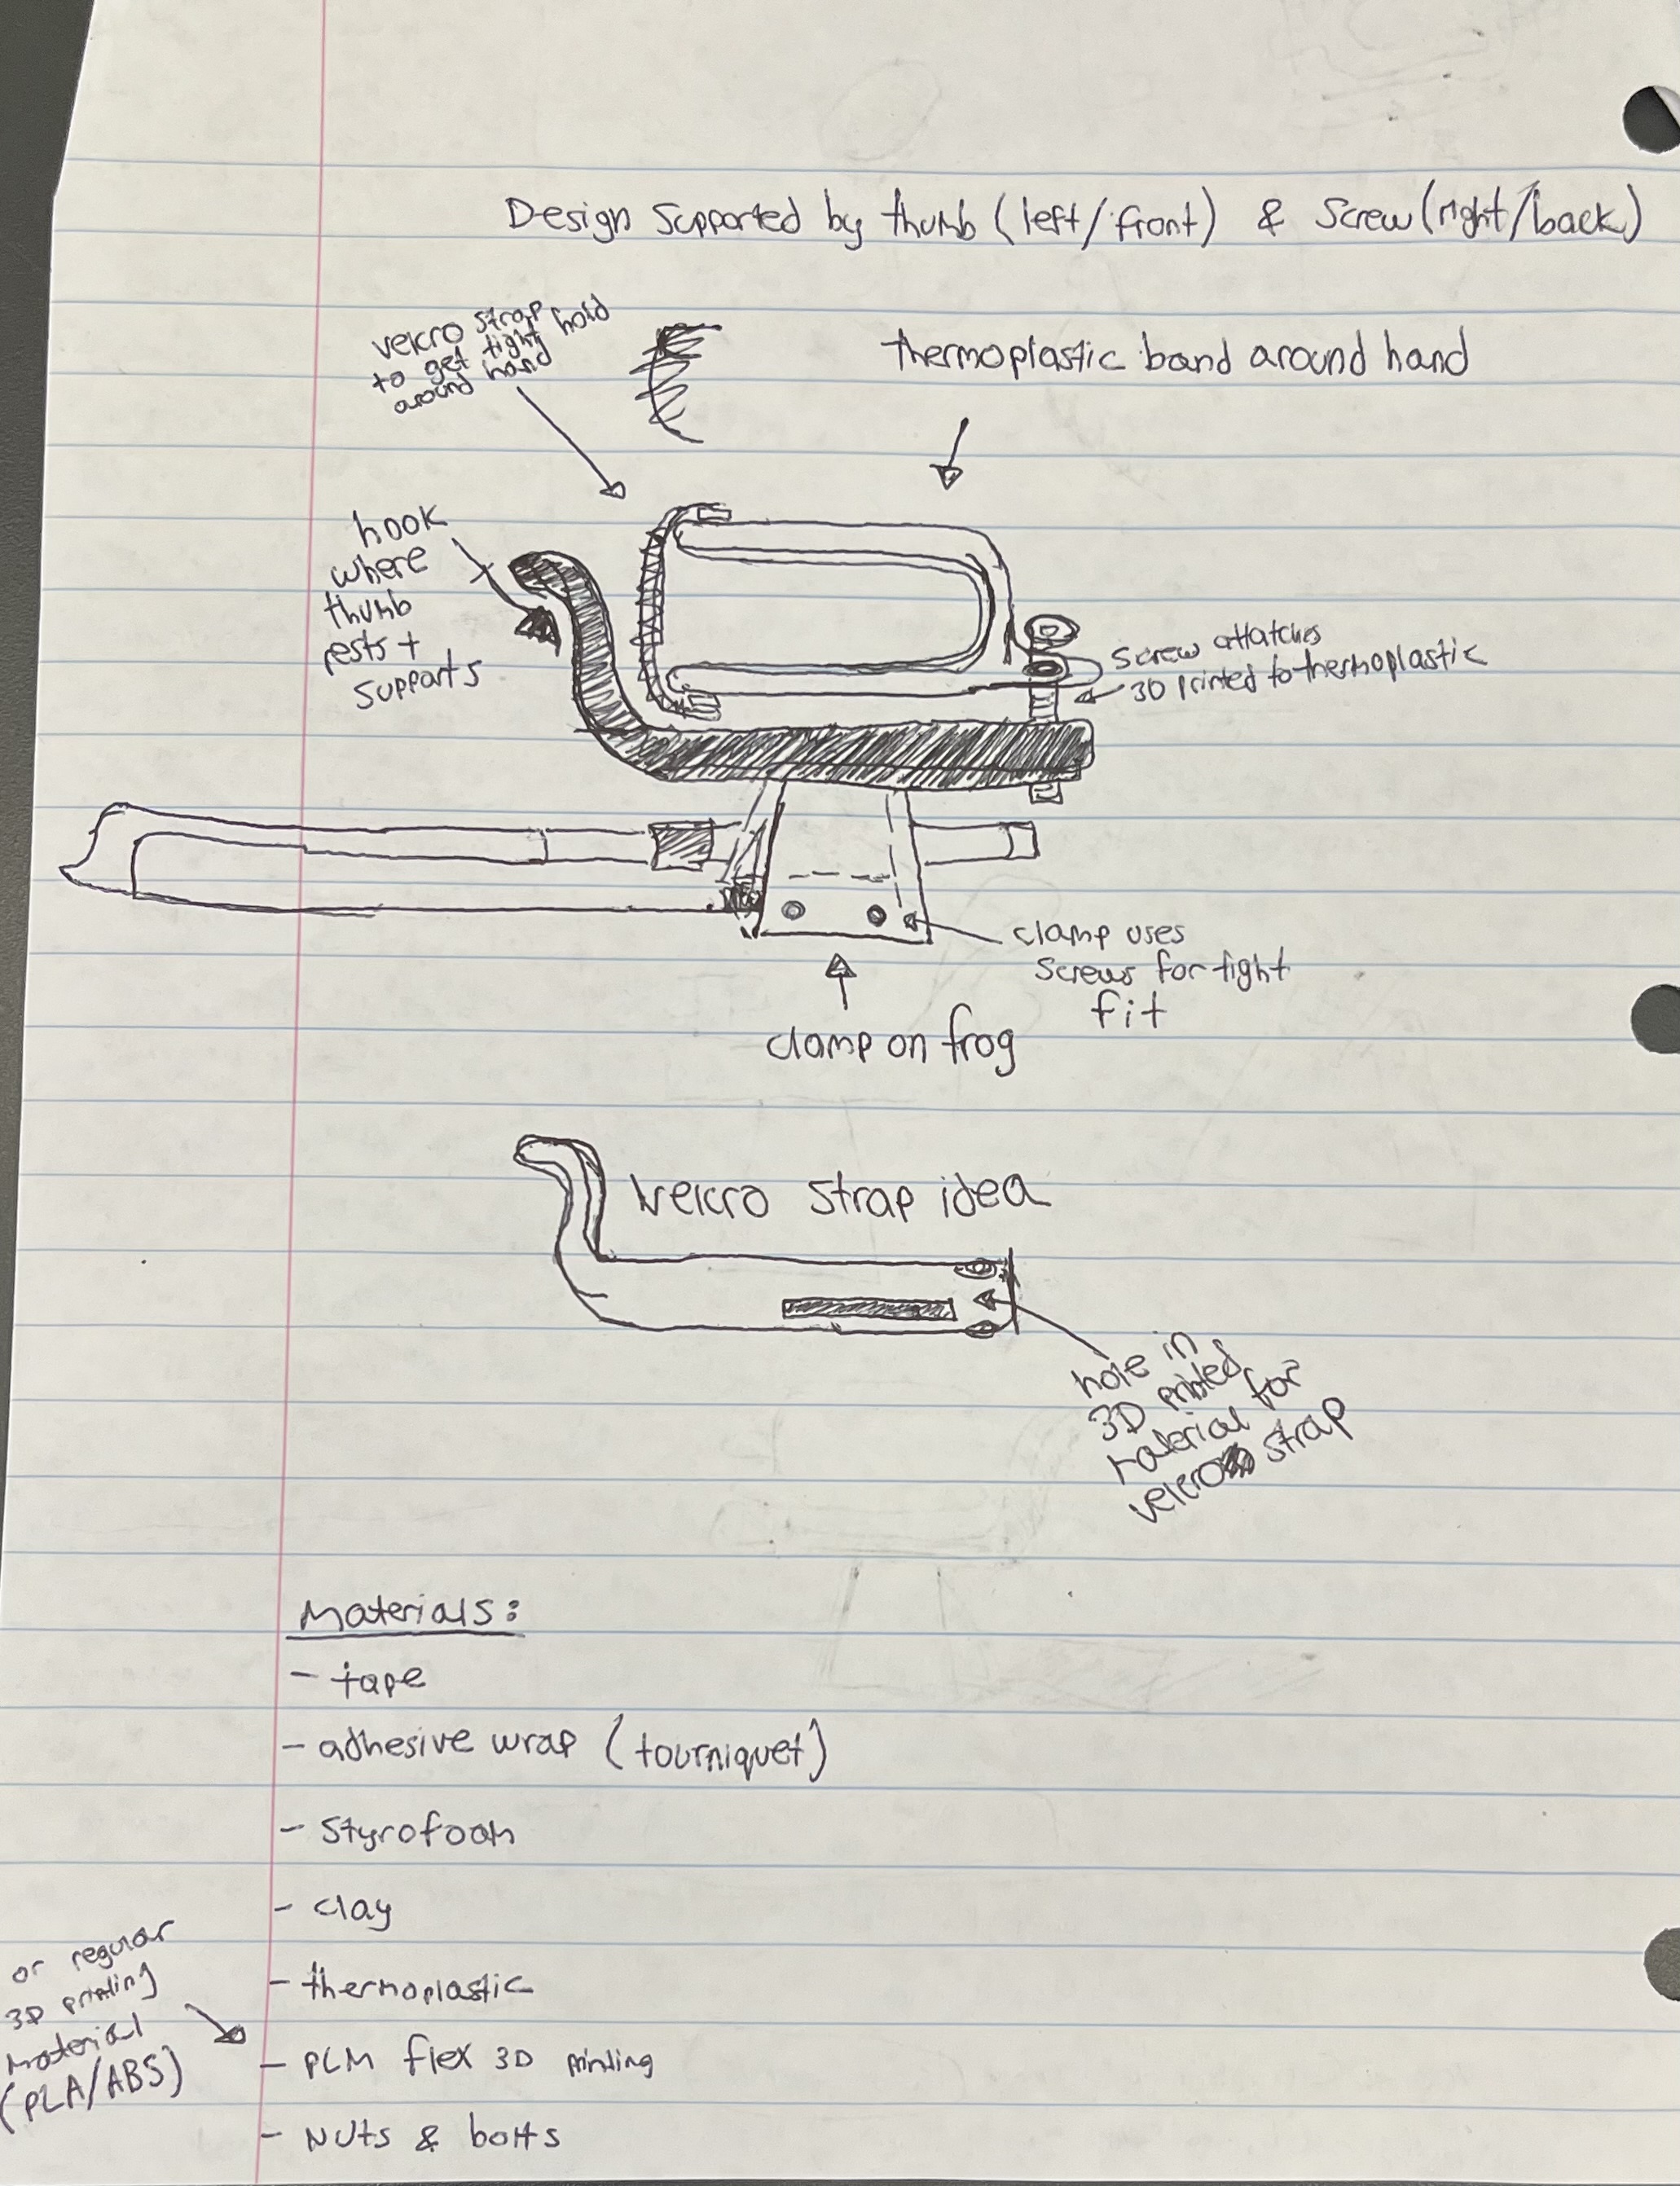 Design Supported by thumb (left/front) & Screw (right/back)
velcro strap
to get tight hold
around hand
thermoplastic band around hand
hook
where
thumb
rests +
supports
screw attatches
3D printed to thermoplastic
clamp uses
screws for tight
fit
clamp on frog
velcro strap idea
hole in
3D printed
material for
velcro strap
Materials:
- tape
- adhesive wrap (tourniquet)
- styrofoam
- clay
- thermoplastic
or regular
3D printing
material
(PLA/ABS)
- PLM flex 3D printing
- Nuts & bolts